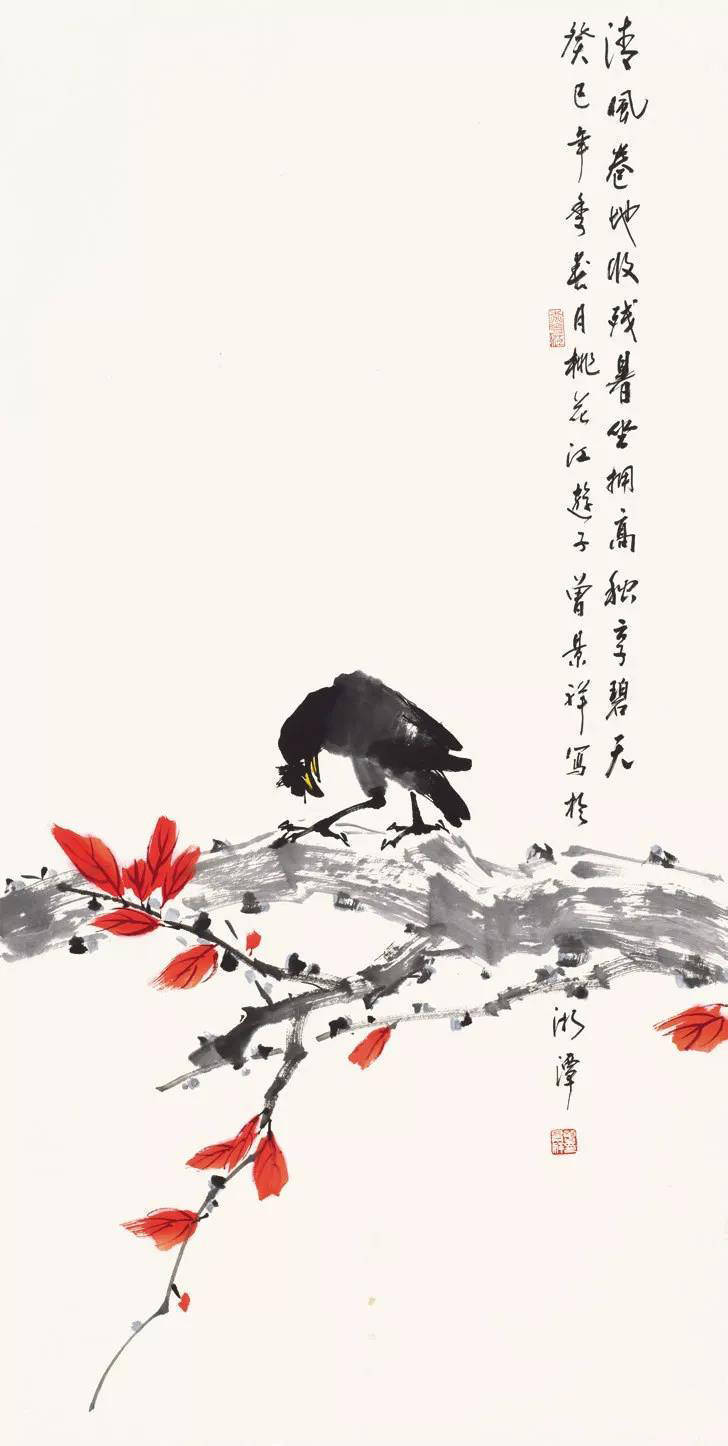 清風卷地收残暑坐拥高秋享碧天
癸巳年季春月桃花江游子曾景祥写於
湘潭